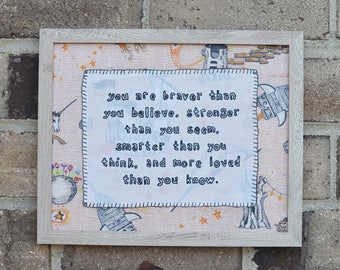 you are braver than
you believe. stronger
than you seem,
smarter than you
think, and more loved
than you know.